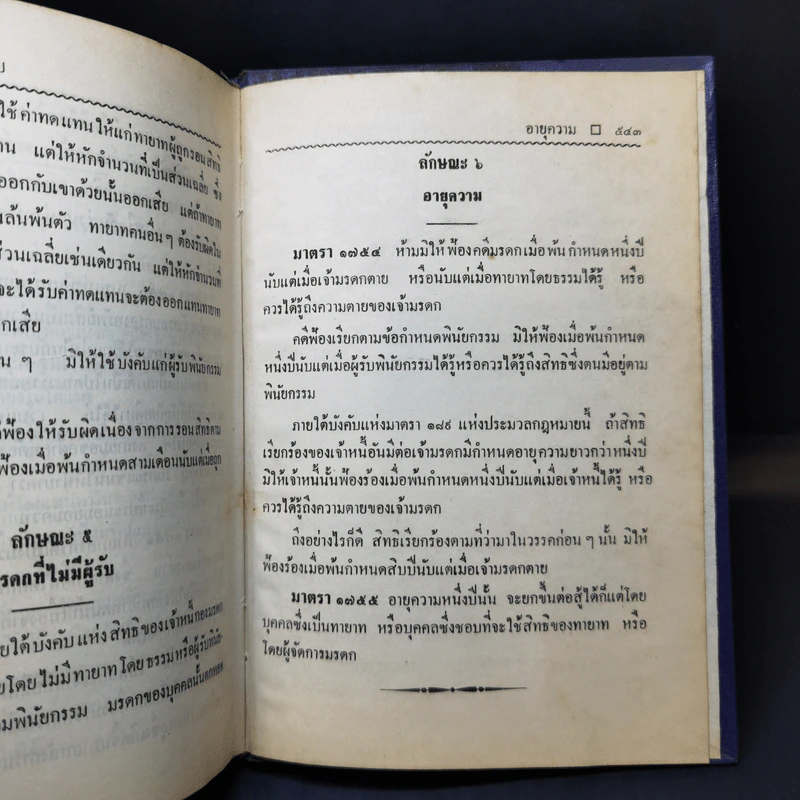 ใช้ค่าทดแทนให้แก่ทายาทผู้ถูกรอนสิทธิ
แต่ให้หักจำนวนที่เป็นส่วนเฉลี่ย ซึ่ง
ออกกับเขาด้วยนั้นออกเสีย แต่ถ้าทายาท
ล้นพ้นตัว ทายาทคนอื่นๆ ต้องรับผิดใน
ส่วนเฉลี่ยเช่นเดียวกัน แต่ให้หักจำนวนที่
จะได้รับค่าทดแทนจะต้องออกแทนทายาท
กเสีย
น ๆ มิให้ใช้บังคับแก่ผู้รับพินัยกรรม
ฟ้องให้รับผิดเนื่องจากการรอนสิทธิตาม
ฟ้องเมื่อพ้นกำหนดสามเดือนนับแต่เมื่อถูก
ลักษณะ ๕
รดกที่ไม่มีผู้รับ
ยใต้บังคับแห่งสิทธิของเจ้าหนี้กองมรดก
ยโดยไม่มีทายาทโดยธรรมหรือผู้รับพินัย-
มพินัยกรรม มรดกของบุคคลนั้นตกทอด
อายุความ □ ๕๔๓
ลักษณะ ๖
อายุความ
มาตรา ๑๗๕๔ ห้ามมิให้ฟ้องคดีมรดกเมื่อพ้นกำหนดหนึ่งปี
นับแต่เมื่อเจ้ามรดกตาย หรือนับแต่เมื่อทายาทโดยธรรมได้รู้ หรือ
ควรได้รู้ถึงความตายของเจ้ามรดก
คดีฟ้องเรียกตามข้อกำหนดพินัยกรรม มิให้ฟ้องเมื่อพ้นกำหนด
หนึ่งปีนับแต่เมื่อผู้รับพินัยกรรมได้รู้หรือควรได้รู้ถึงสิทธิซึ่งตนมีอยู่ตาม
พินัยกรรม
ภายใต้บังคับแห่งมาตรา ๑๘๙ แห่งประมวลกฎหมายนี้ ถ้าสิทธิ
เรียกร้องของเจ้าหนี้อันมีต่อเจ้ามรดกมีกำหนดอายุความยาวกว่าหนึ่งปี
มิให้เจ้าหนี้นั้นฟ้องร้องเมื่อพ้นกำหนดหนึ่งปีนับแต่เมื่อเจ้าหนี้ได้รู้ หรือ
ควรได้รู้ถึงความตายของเจ้ามรดก
ถึงอย่างไรก็ดี สิทธิเรียกร้องตามที่ว่ามาในวรรคก่อนๆ นั้น มิให้
ฟ้องร้องเมื่อพ้นกำหนดสิบปีนับแต่เมื่อเจ้ามรดกตาย
มาตรา ๑๗๕๕ อายุความหนึ่งปีนั้น จะยกขึ้นต่อสู้ได้ก็แต่โดย
บุคคลซึ่งเป็นทายาท หรือบุคคลซึ่งชอบที่จะใช้สิทธิของทายาท หรือ
โดยผู้จัดการมรดก